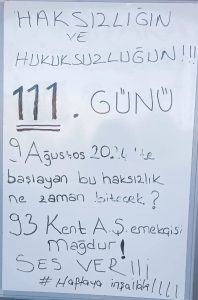 HAKSIZLIĞIN
VE
HUKUKSUZLUĞUN!!!
111. GÜNÜ
9 Ağustos 2024'te
başlayan bu haksızlık
ne zaman bitecek?
93 Kent A.Ş. emekçisi
Mağdur!
SES VER!!!
# Haftaya inşallah!!!!